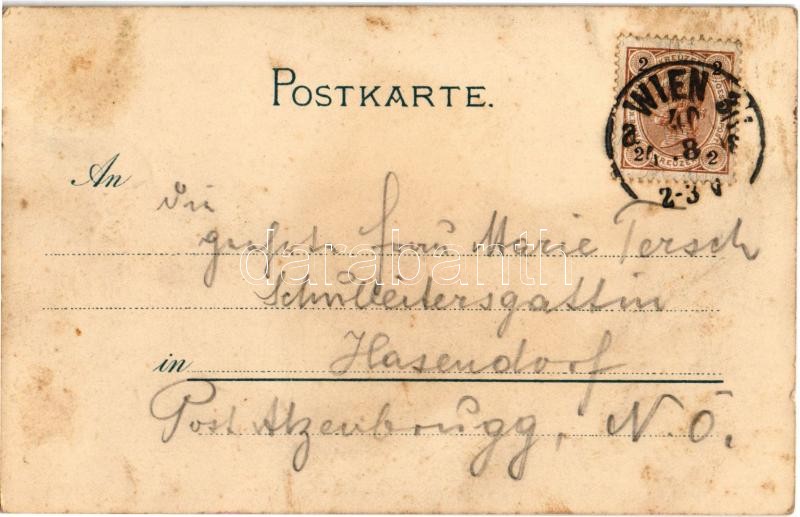 POSTKARTE.
2 KREUZER 2
WIEN
40
a
8
2-3
2 KREUZER 2
An die
geehrte Frau Marie Tersch
darabanth
Schulleitersgattin
in Hasendorf
Post Atzenbrugg, N. Ö.